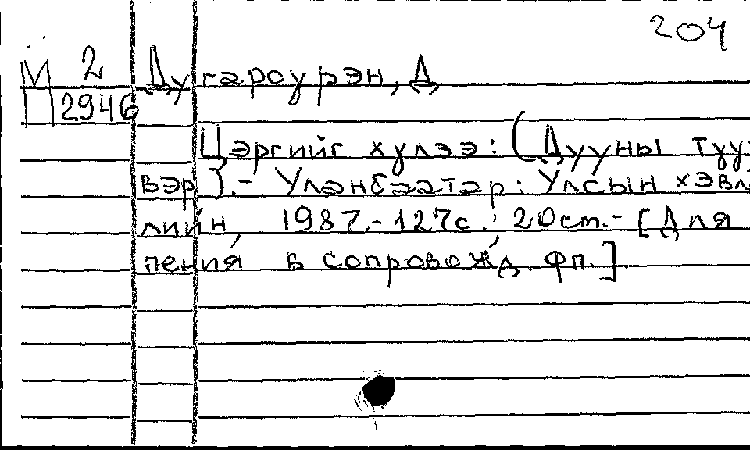 204
М 2 Дугароурэн, Д
П 2946
Цэргийг хүлээ: (Дууны түүв
вэр). - Улаанбаатар: Улсын хэвл
лийн, 1987. - 127с.; 20ст. - [Для
пения в сопровожд. фп.]